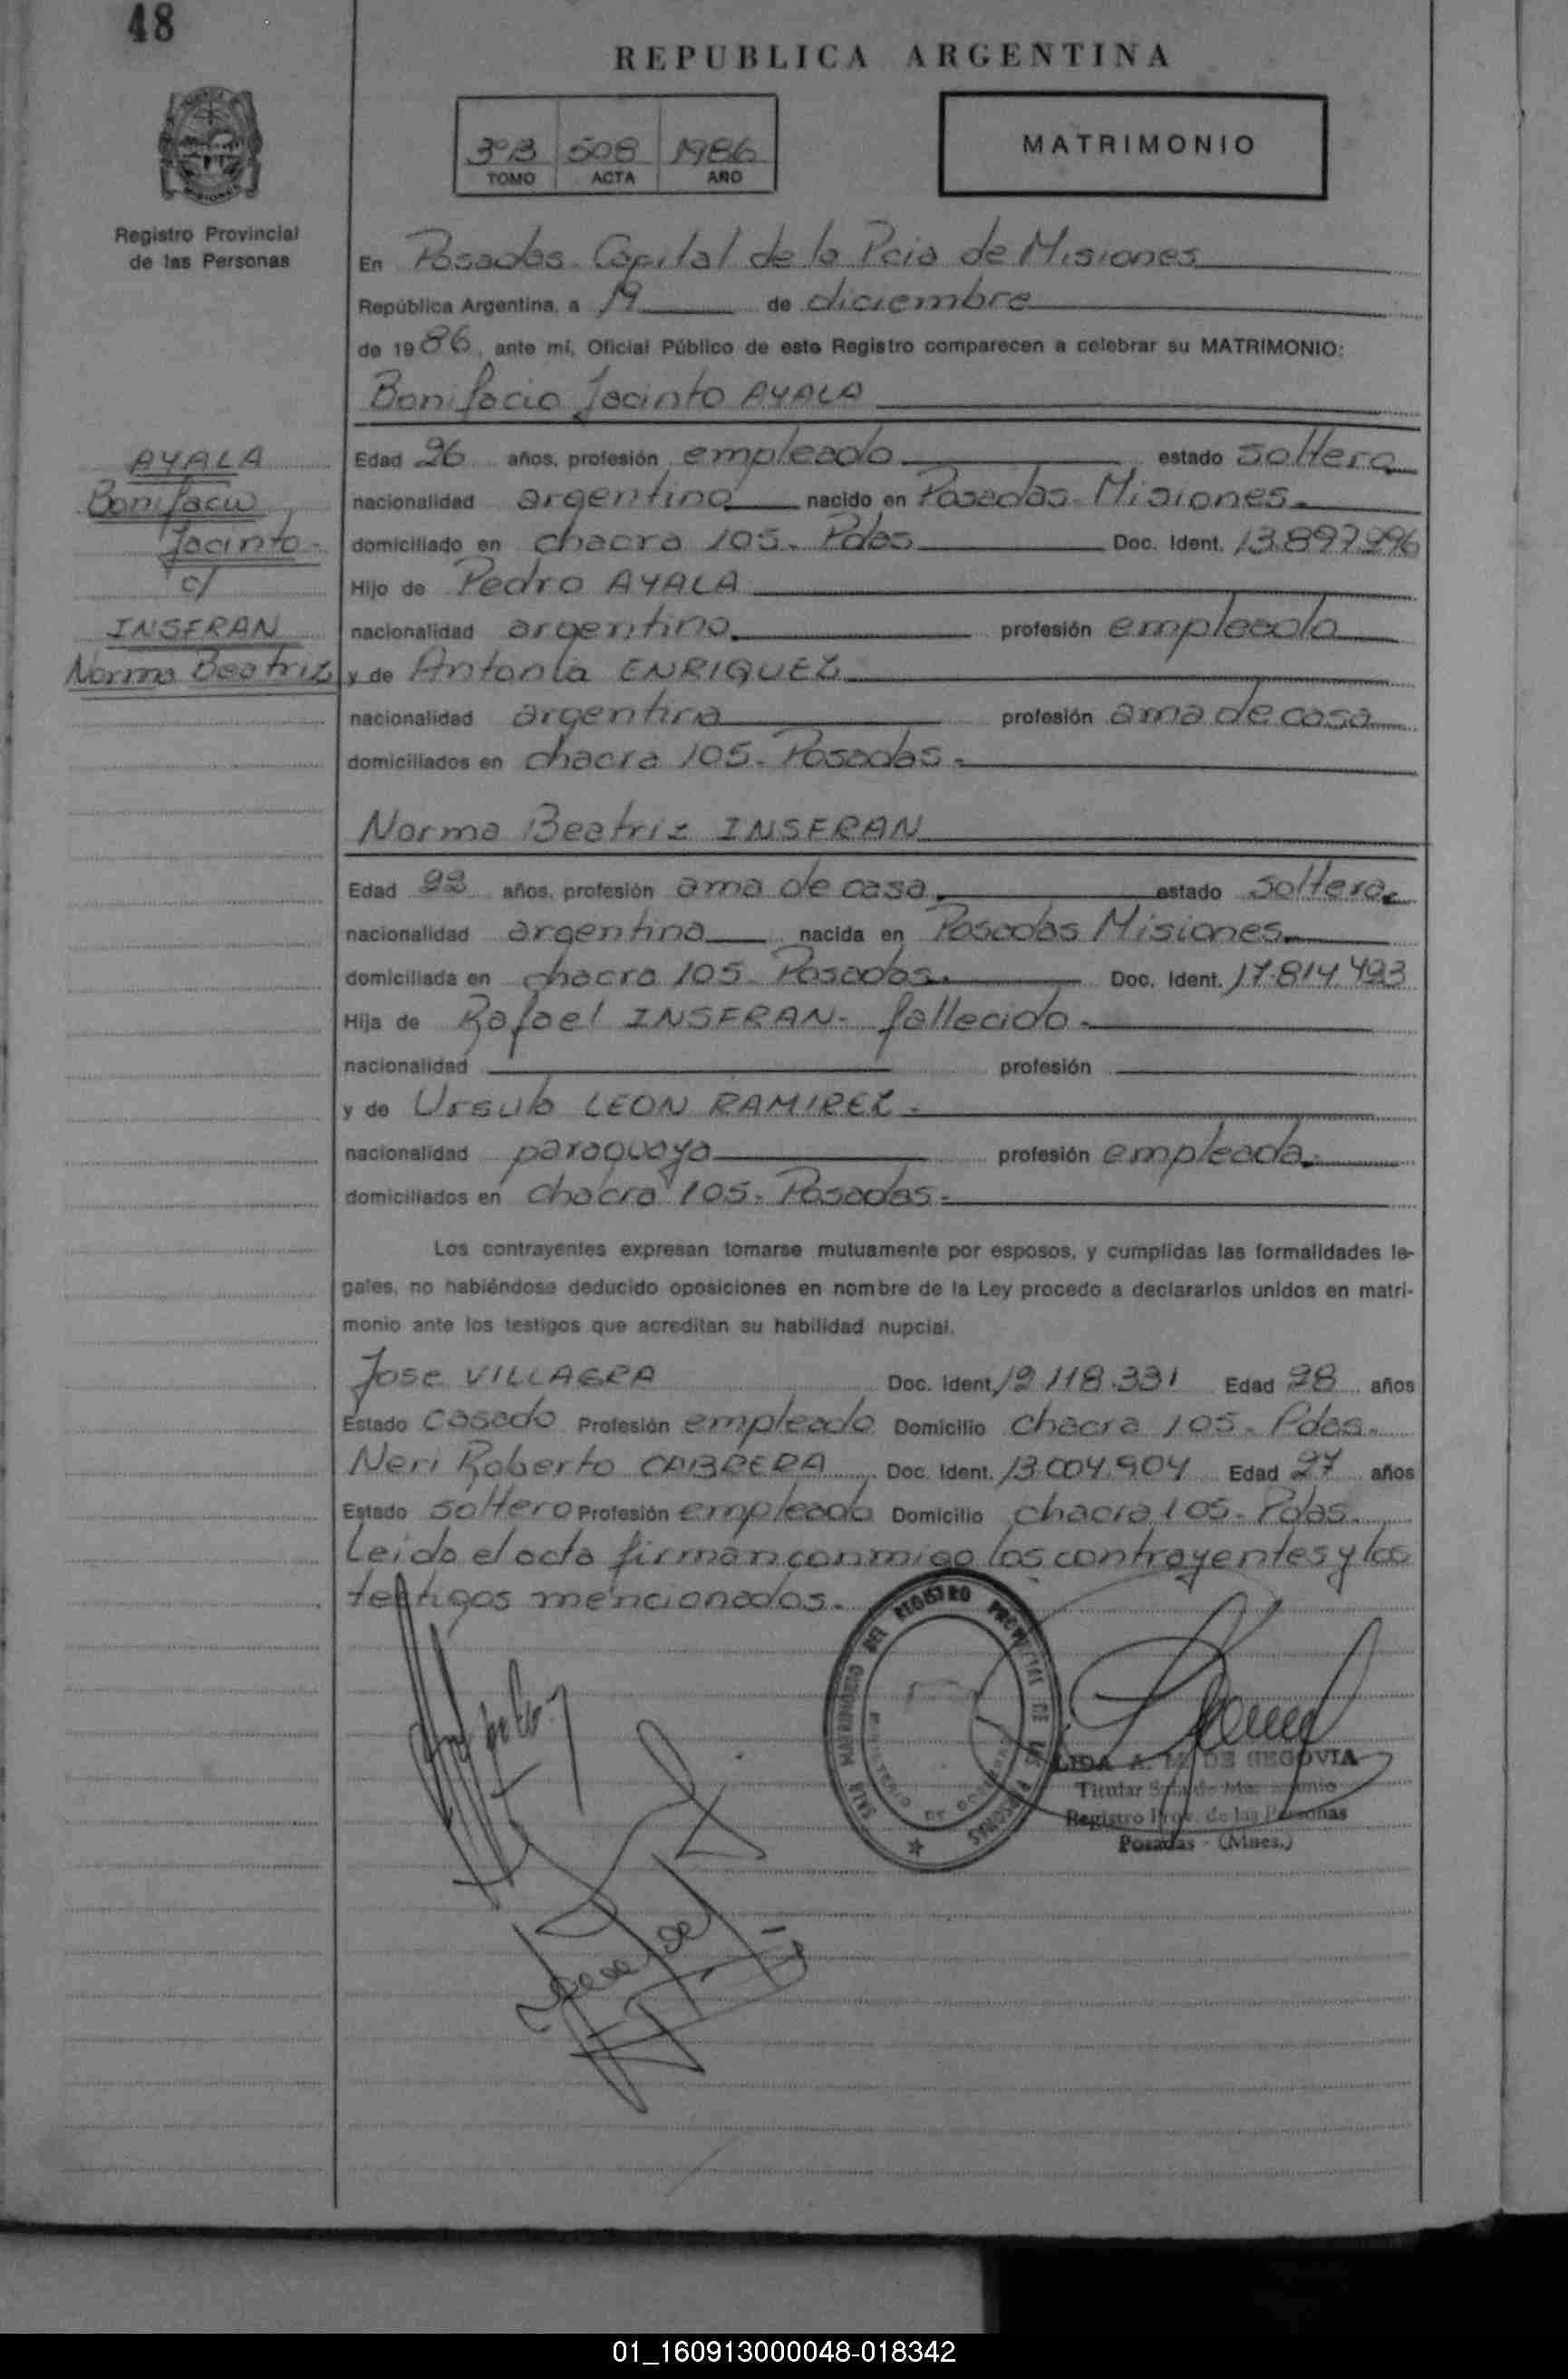 48
REPUBLICA ARGENTINA
3ºB 508 1986
TOMO ACTA AÑO
MATRIMONIO
Registro Provincial
de las Personas
En Posadas. Capital de la Pcia de Misiones
República Argentina, a 19 de diciembre
de 1986, ante mí, Oficial Público de este Registro comparecen a celebrar su MATRIMONIO:
Bonifacio Jacinto AYALA
AYALA
Bonifacio
Jacinto-
c/
INSFRAN
Norma Beatriz
Edad 26 años, profesión empleado estado soltero
nacionalidad argentino nacido en Posadas-Misiones.
domiciliado en chacra 105. Pdas Doc. Ident. 13.897.996
Hijo de Pedro AYALA
nacionalidad argentino. profesión empleado
y de Antonia ENRIQUEZ
nacionalidad argentina profesión ama de casa
domiciliados en chacra 105- Posadas-
Norma Beatriz INSFRAN
Edad 22 años, profesión ama de casa. estado soltera.
nacionalidad argentina nacida en Posadas Misiones.
domiciliada en chacra 105- Posadas. Doc. Ident. 17.814.493
Hija de Rafael INSFRAN- fallecido-
nacionalidad profesión
y de Ursula LEON RAMIREZ.
nacionalidad paraguaya profesión empleada.
domiciliados en chacra 105- Posadas-
Los contrayentes expresan tomarse mutuamente por esposos, y cumplidas las formalidades le-
gales, no habiéndose deducido oposiciones en nombre de la Ley procedo a declararlos unidos en matri-
monio ante los testigos que acreditan su habilidad nupcial.
Jose VILLAGRA Doc. Ident. 12.118.331 Edad 28 años
Estado casado Profesión empleado Domicilio chacra 105- Pdas.
Neri Roberto CABRERA Doc. Ident. 13.004.904 Edad 27 años
Estado soltero Profesión empleado Domicilio chacra 105- Pdas.
Leida el acta firman conmigo los contrayentes y los
testigos mencionados.
SALA MATRIMONIO DEL REGISTRO PROVINCIAL DE LAS PERSONAS
MINISTERIO DE GOBIERNO
LIDA A. M. DE SEGOVIA
Titular Sala de Matrimonio
Registro Prov. de las Personas
Posadas - (Mnes.)
01_160913000048-018342